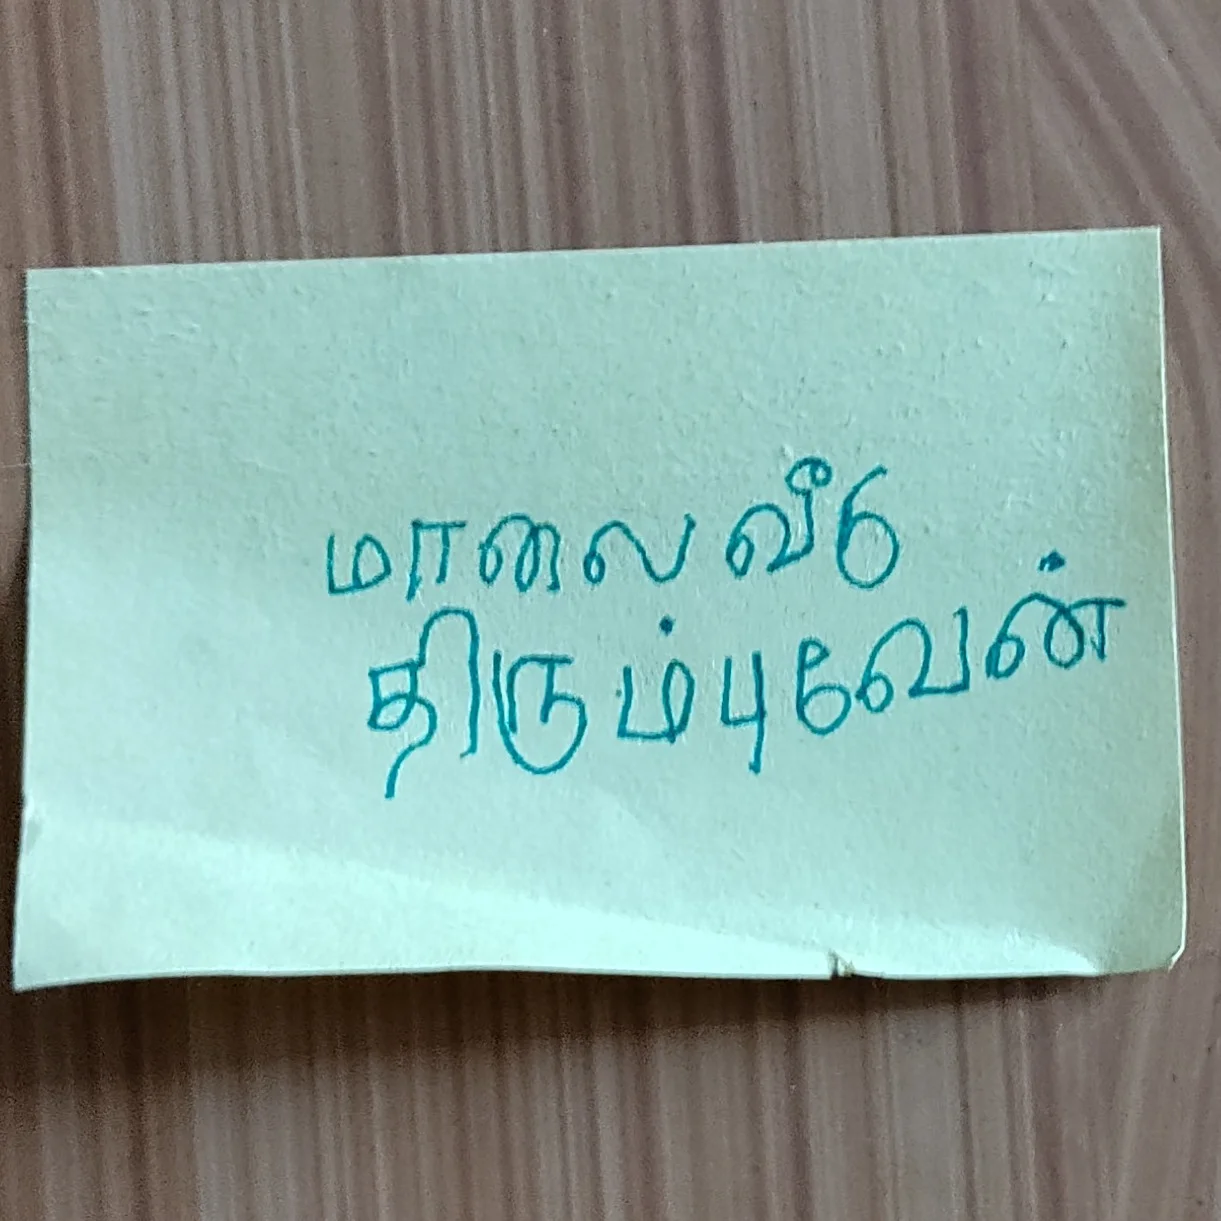 மாலை வீடு
திரும்புவேன்